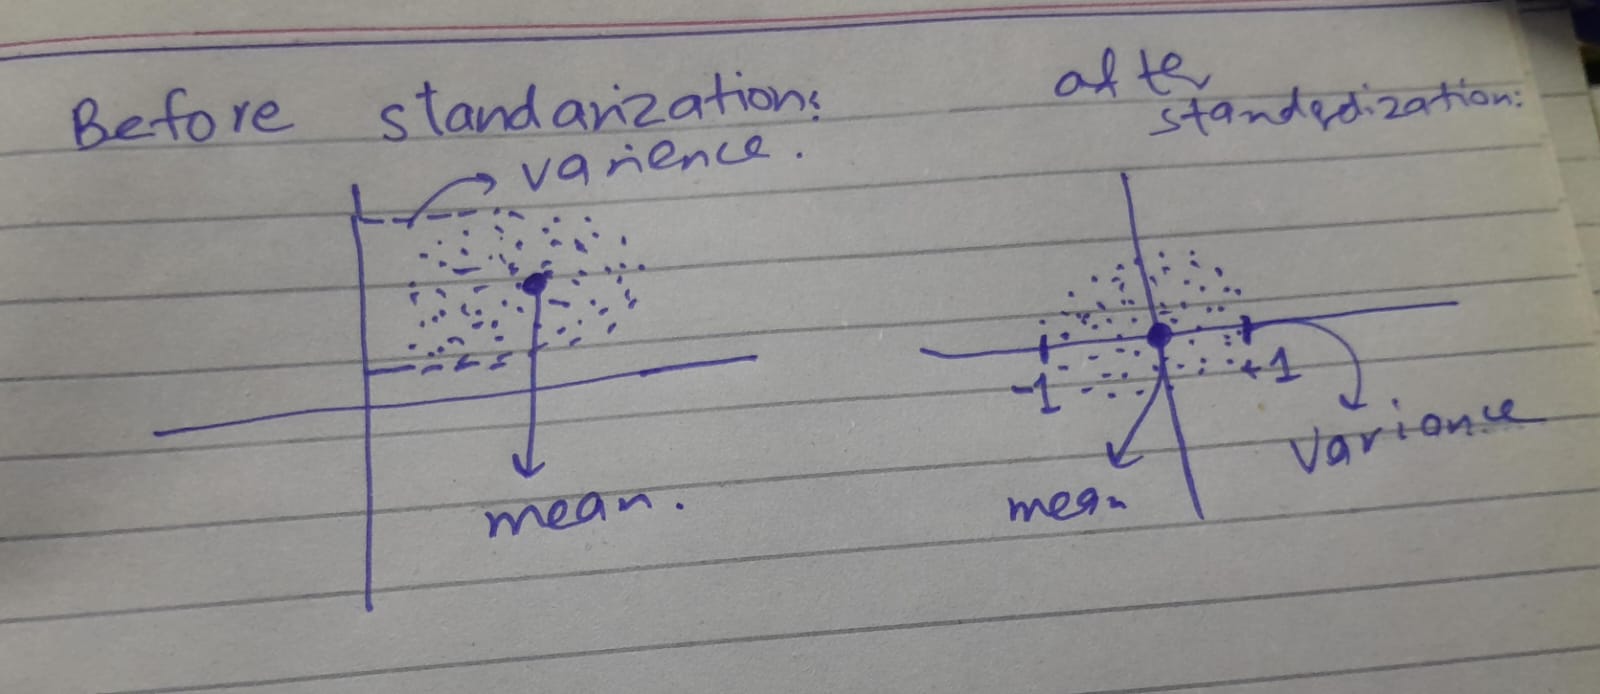 Before standarization:
varience.
mean.
after
standardization:
-1
+1
variance
mean